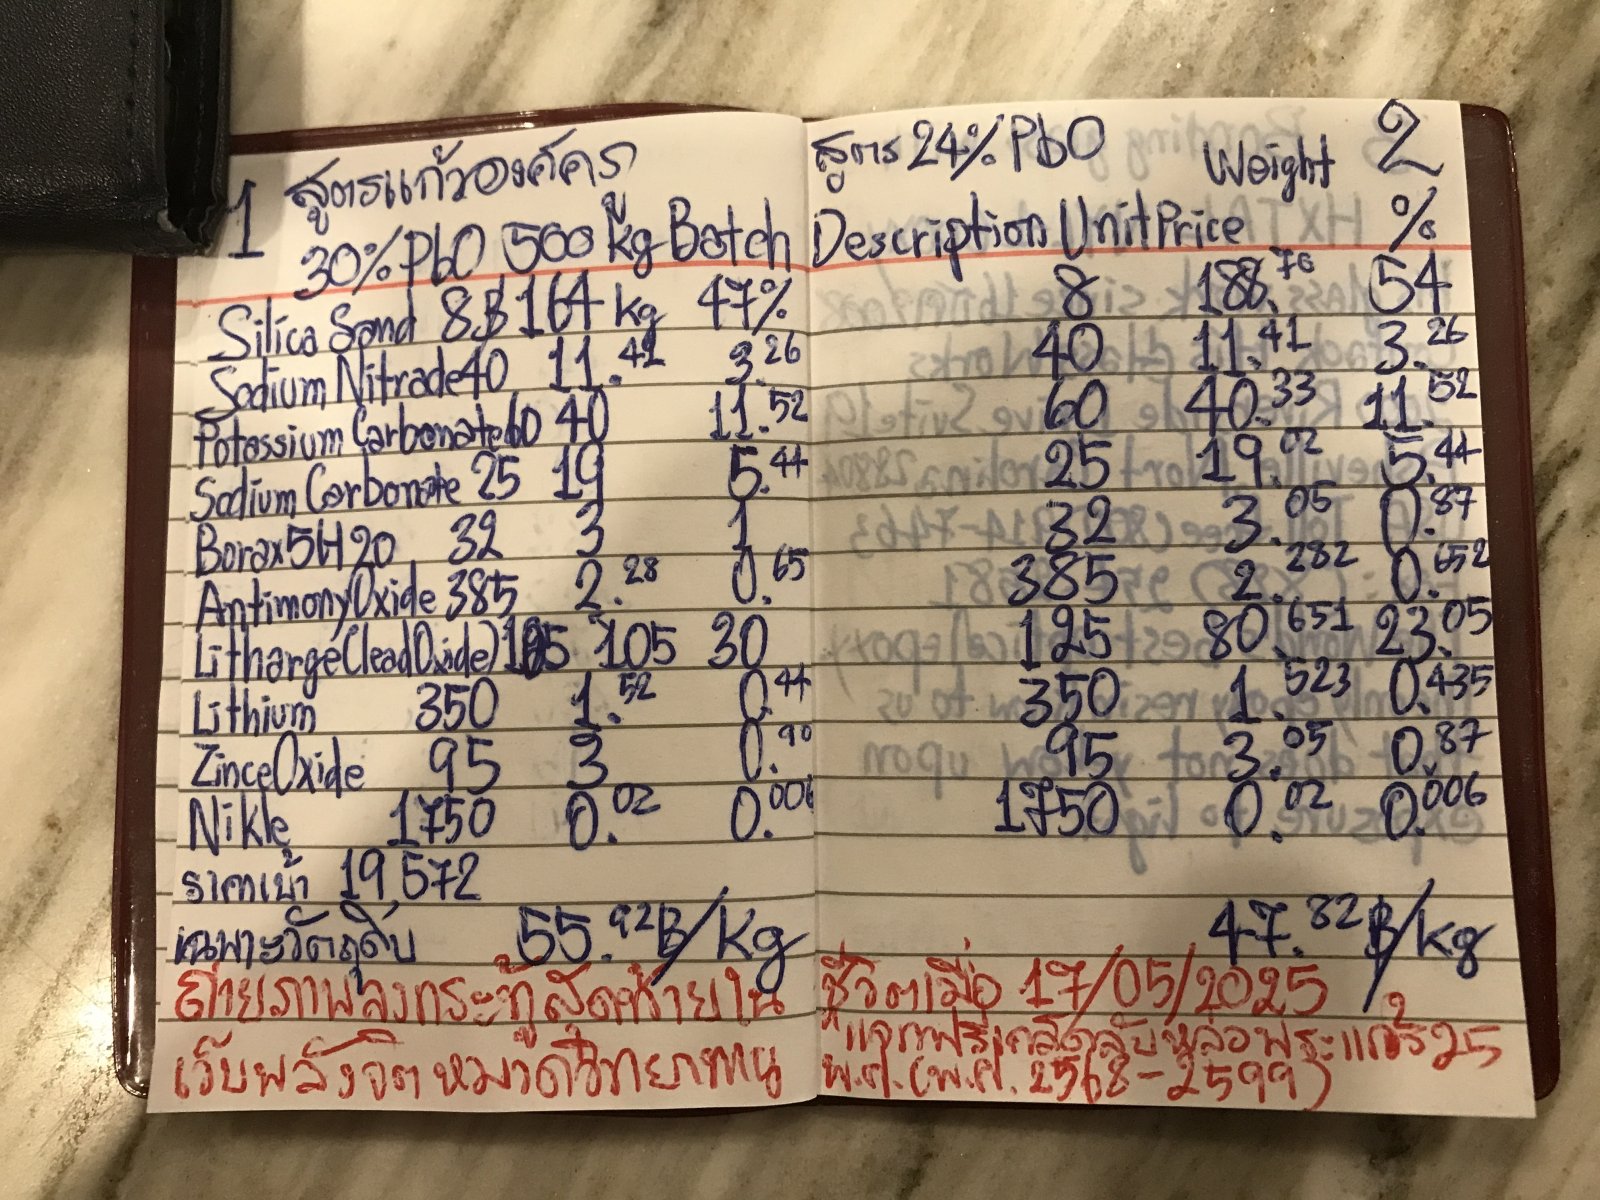 1 สูตรแก้วองศ์คฤ
30% PbO 500 kg Batch
Silica Sand 8฿ 164 kg 47%
Sodium Nitrade 40 11.41 3.26
Potassium Carbonate 60 40 11.52
Sodium Carbonate 25 19 5.44
Borax 5H20 32 3 1
Antimony Oxide 385 2.28 0.65
Litharge (lead Oxide) 105 30
Lithium 350 1.52 0.44
Zince Oxide 95 3 0.90
Nikle 1750 0.02 0.006
ราคาเบ้า 19,572
เฉพาะวัตถุดิบ 55.92 ฿/Kg
ถ่ายภาพลงกระทู้สุดท้ายใน
เว็บพลังจิต หมวดวิทยาทาน
สูตร 24% PbO Weight 2
Description Unit Price %
8 188.76 54
40 11.41 3.26
60 40.33 11.52
25 19.02 5.44
32 3.05 0.87
385 2.282 0.652
125 80.651 23.05
350 1.523 0.435
95 3.05 0.87
1750 0.02 0.006
47.82 ฿/kg
ชีวิตเมื่อ 17/05/2025
แจกฟรีเคล็ดลับหล่อพระแก้ว 25
พ.ศ. (พ.ศ. 2568-2599)